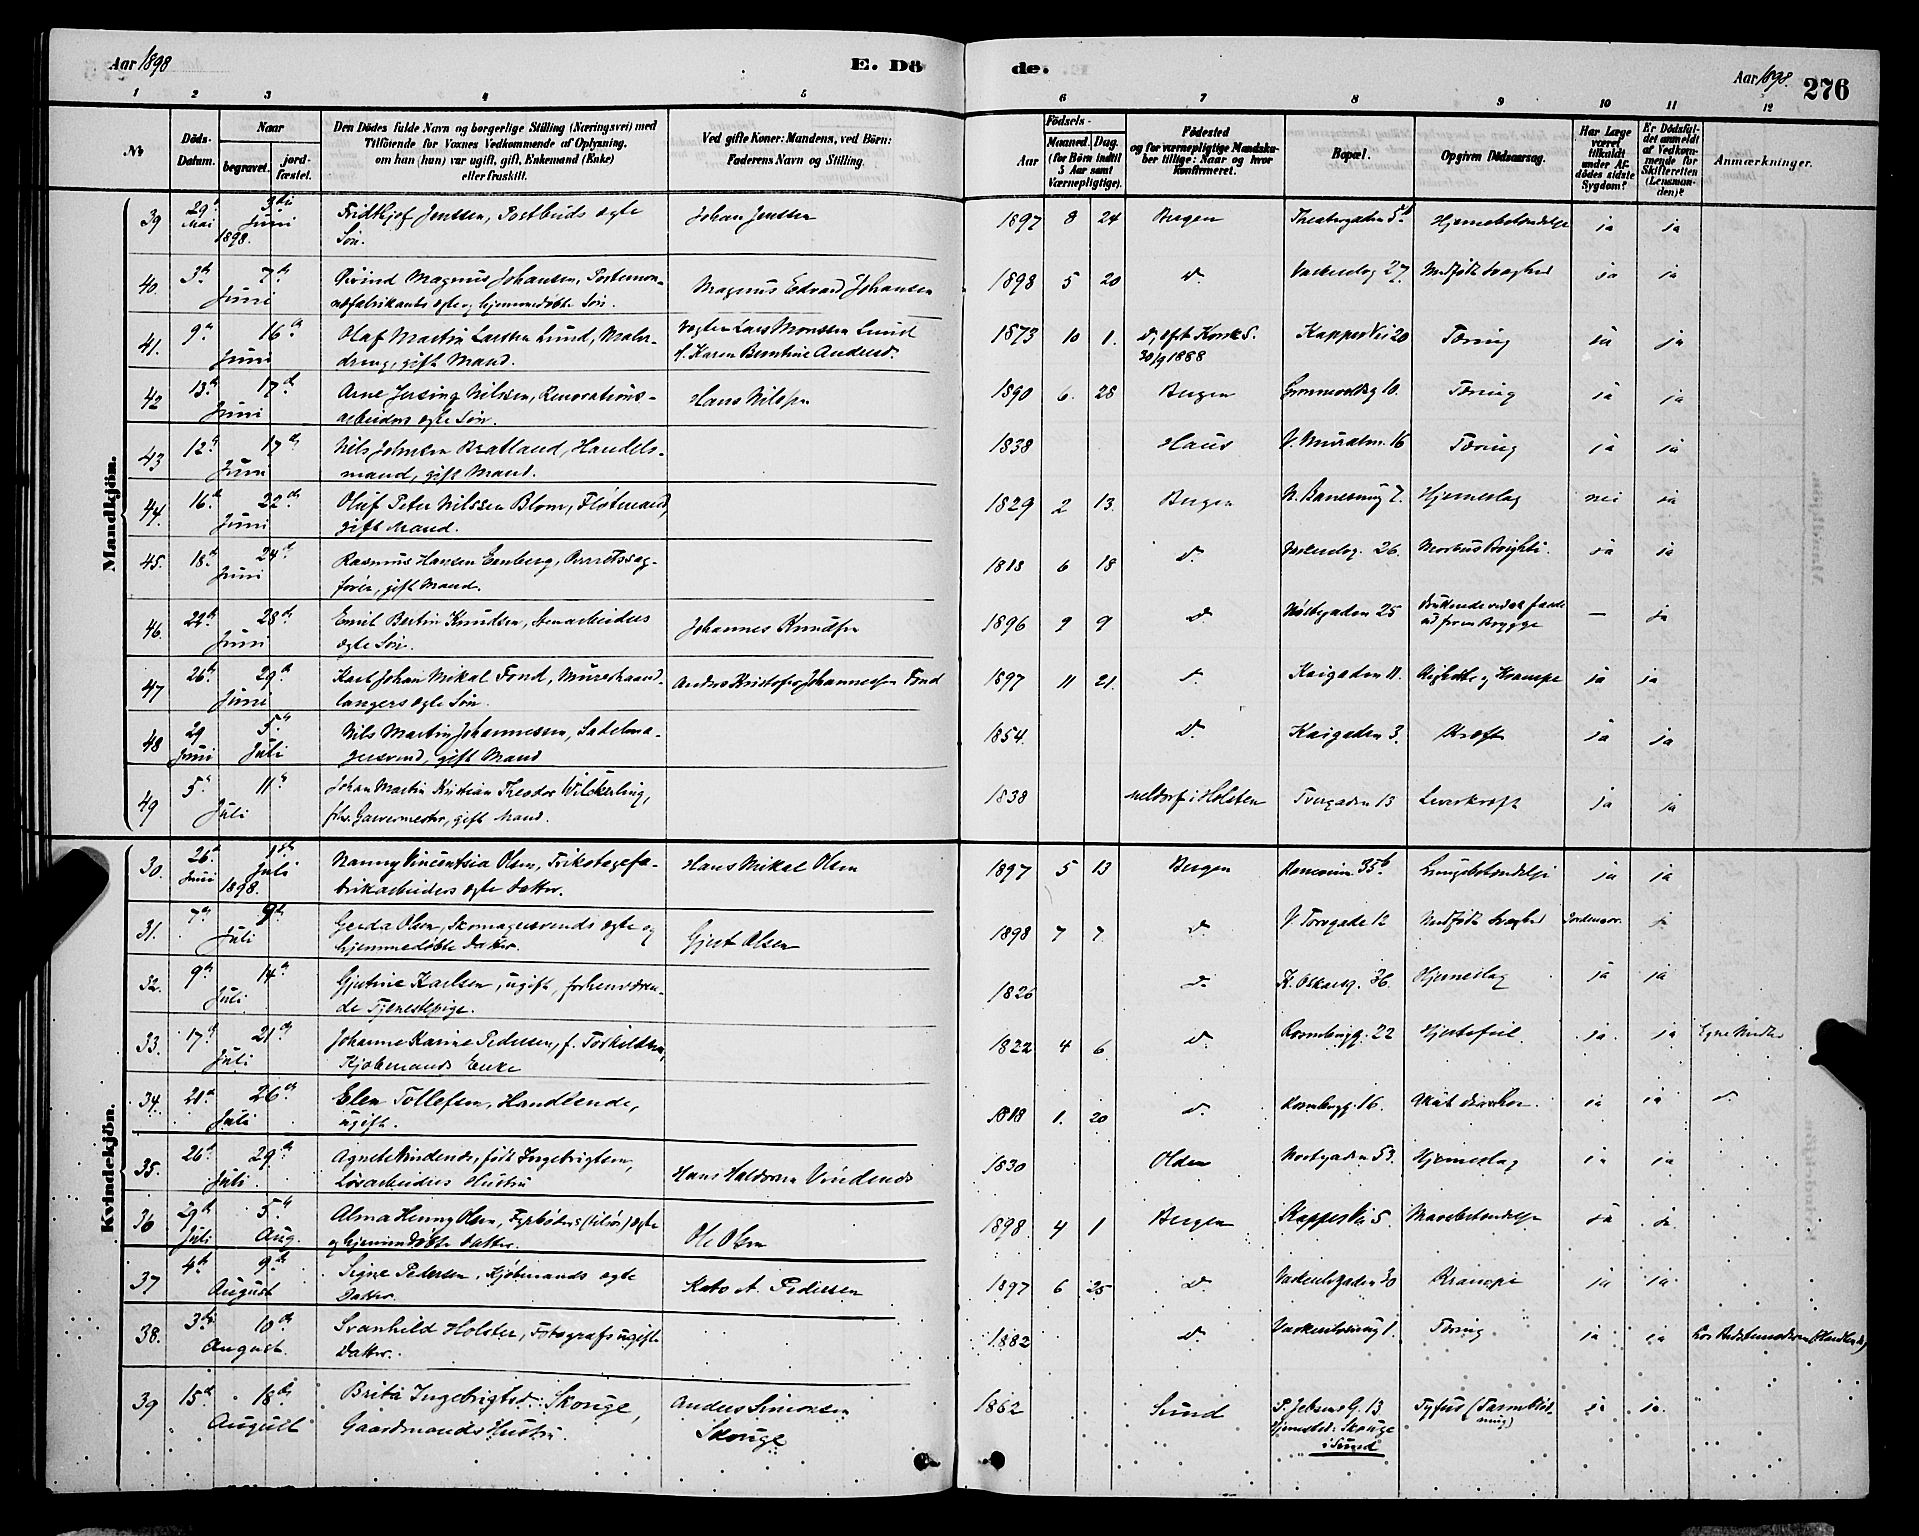 Aar 1898
E. Dö
de.
Aar 1898.
276
1 2 3 4 5 6 7 8 9 10 11 12
No
Döds-Datum.
Naar
begravet.
jord-fæstet.
Den Dödes fulde Navn og borgerlige Stilling (Næringsvei) med
Tilföiende for Voxnes Vedkommende af Oplysning,
om han (hun) var ugift, gift, Enkemand (Enke)
eller fraskilt.
Ved gifte Koner: Mandens, ved Börn:
Faderens Navn og Stilling.
Födsels-
Aar
Maaned. Dag.
(for Börn indtil
5 Aar samt
Værnepligtige).
Födested
og for værnepligtige Mandska-
ber tillige: Naar og hvor
konfirmeret.
Bopæl.
Opgiven Dödsaarsag.
Har Læge
været
tilkaldt
under Af-
dödes sidste
Sygdom?
Er Dödsfal-
det anmeldt
af Vedkom-
mende for
Skifteretten
(Lensman-
den)?
Anmærkninger.
Mandkjön.
39 29 Mai 3die Juni 1898. Fridthjof Jenssen, Postbuds ægte Søn. Johan Jenssen 1897 8 24 Bergen Theatergaden 5b Hjernebetændelse ja ja
40. 3de 7de Juni Øivind Magnus Johansen, Portemon-
næfabrikants ægte og hjemmedøbte Søn. Magnus Edvard Johansen 1898 5 20 d. 27. Medfødt Svaghed ja ja
41. 9de 16de Juni Olaf Martin Larssen Lund, Maler-
dreng, gift Mand. Vogter Lars Monssen Lund
f. Karen Berntine Andersd. 1873 10 1. 30/9 1888 Kappes Vei 20 Tæring ja ja
42 13de 17de Juni Arne Jersing Nilssen, Renovations-
arbeiders ægte Søn. Hans Nilssen 1890 6. 28 Bergen 10. Tæring ja ja
43 12te 17de Juni Nils Johnsen Bratland, Handels-
mand, gift Mand. 1838 Haus V. Muralm. 16 Tæring ja ja
44. 16de 22de Juni Oluf Peter Nilssen Blom, Fløtmand,
gift Mand. 1829 2 13. Bergen 7. Hjerneslag nei ja
45. 18de 24de Juni Rasmus Hansen Enberg, Overretssag-
fører, gift Mand. 1818 6 18 d. 26. Morbus Brighti. ja ja
46. 22de 28de Juni Emil Bertin Knudsen, Stenarbeiders
ægte Søn. Johannes Knudsen 1896 9 9 d Nøstegaden 25 Druknede ved at falde
ud for en Brygge — ja
47 26de 29de Juni Karl Johan Mikal Fond, Murerhaand-
langers ægte Søn. Anders Kristofer Johannessen Fond 1897 11 21. d. Kaigaden 11. og Krampe ja ja
48 29 Juni 5te Juli Nils Martin Johannessen, Sadelma-
gersvend, gift Mand 1854. d. Kaigaden 3. Kræft ja ja
49 5te 11te Juli Johan Martin Kristian Theodor Wilckerling,
fhv. Garvermester, gift Mand. 1838 Meldorf i Holsten Tvergaden 13 Leverkræft ja ja
Kvindekjön.
30. 26. Juni 1ste Juli 1898. Nanny Vincentsia Olsen, Trikotagefa-
brikarbeiders ægte Datter. Hans Mikal Olsen 1897 5 13 Bergen 35b Lungebetændelse ja ja
31. 7de 9de Juli Gerda Olsen, Skomagersvends ægte og
hjemmedøbte Datter. Gjert Olsen 1898 7 7 d. V. Torvgade 12 Medfødt Svaghed Jordemor. ja
32. 9de 14de Juli Gjertine Karlsen, ugift, forhenværen-
de Tjenestepige. 1826 d. K. Oskarsg. 36 Hjerneslag ja ja
33. 17de 21de Juli Johanne Karine Pedersen, f. Torkildsen,
Kjøbmands Enke 1822 4 6 d. Rosenbergg. 22 Hjertefeil ja ja Egne Midler
34. 21de 26de Juli Elen Tollefsen, Handlende,
ugift. 1818 1. 20 d. Rosenbergg. 16. ja ja d.
35. 26de 29de Juli Agnete Vindenes, født Ingebrigtsen,
Løsarbeiders Hustru Hans Haldorsen Vindenes 1830 Olden Nøstgaden 53. Hjerneslag ja ja
36 29de Juli 5te Aug. Alma Henny Olsen, Fyrbøders (tilsøs) ægte
og hjemmedøbte Datter. Ole Olsen 1898 4 1 Bergen Kappes Vei 5. Mavebetændelse ja ja
37 4de 9de August Signe Pedersen, Kjøbmands ægte
Datter. Kato A. Pedersen 1897 6 25 d Vaskerelvgaden 30 Krampe ja ja
38. 3die 10de August Svanhild Holster, Fotografs ugifte
Datter. 1882 d 1. Tæring ja ja
39 15de 18de August Brita Ingebrigtsd. Skouge,
Gaardmands Hustru. Anders Simonsen
Skouge 1862 Sund P. Jebsens G. 13
Hjemsted: Skouge
i Sund Tyfus (Tarmblød-
ning) ja ja.